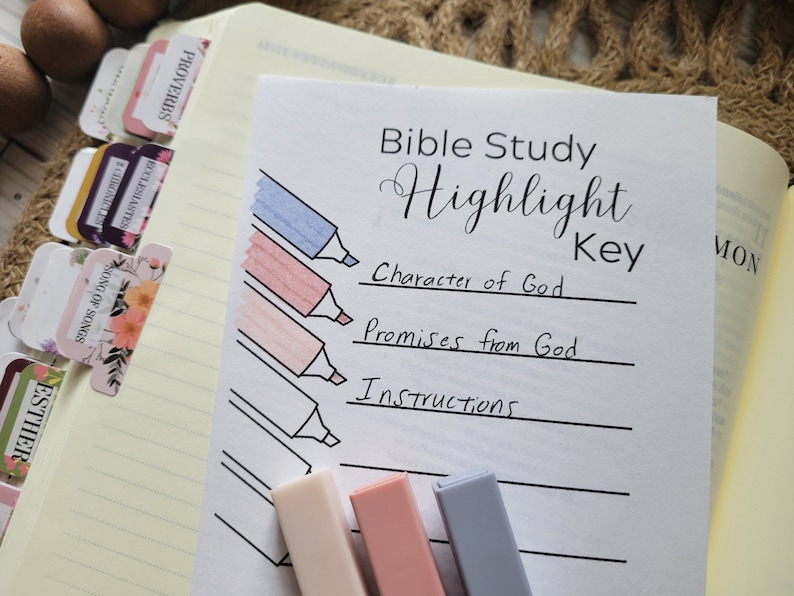 Bible Study
Highlight
Key
Character of God
Promises from God
Instructions
PROVERBS
ECCLESIASTES
2 CHRONICLES
SONG OF SONGS
ESTHER
MON